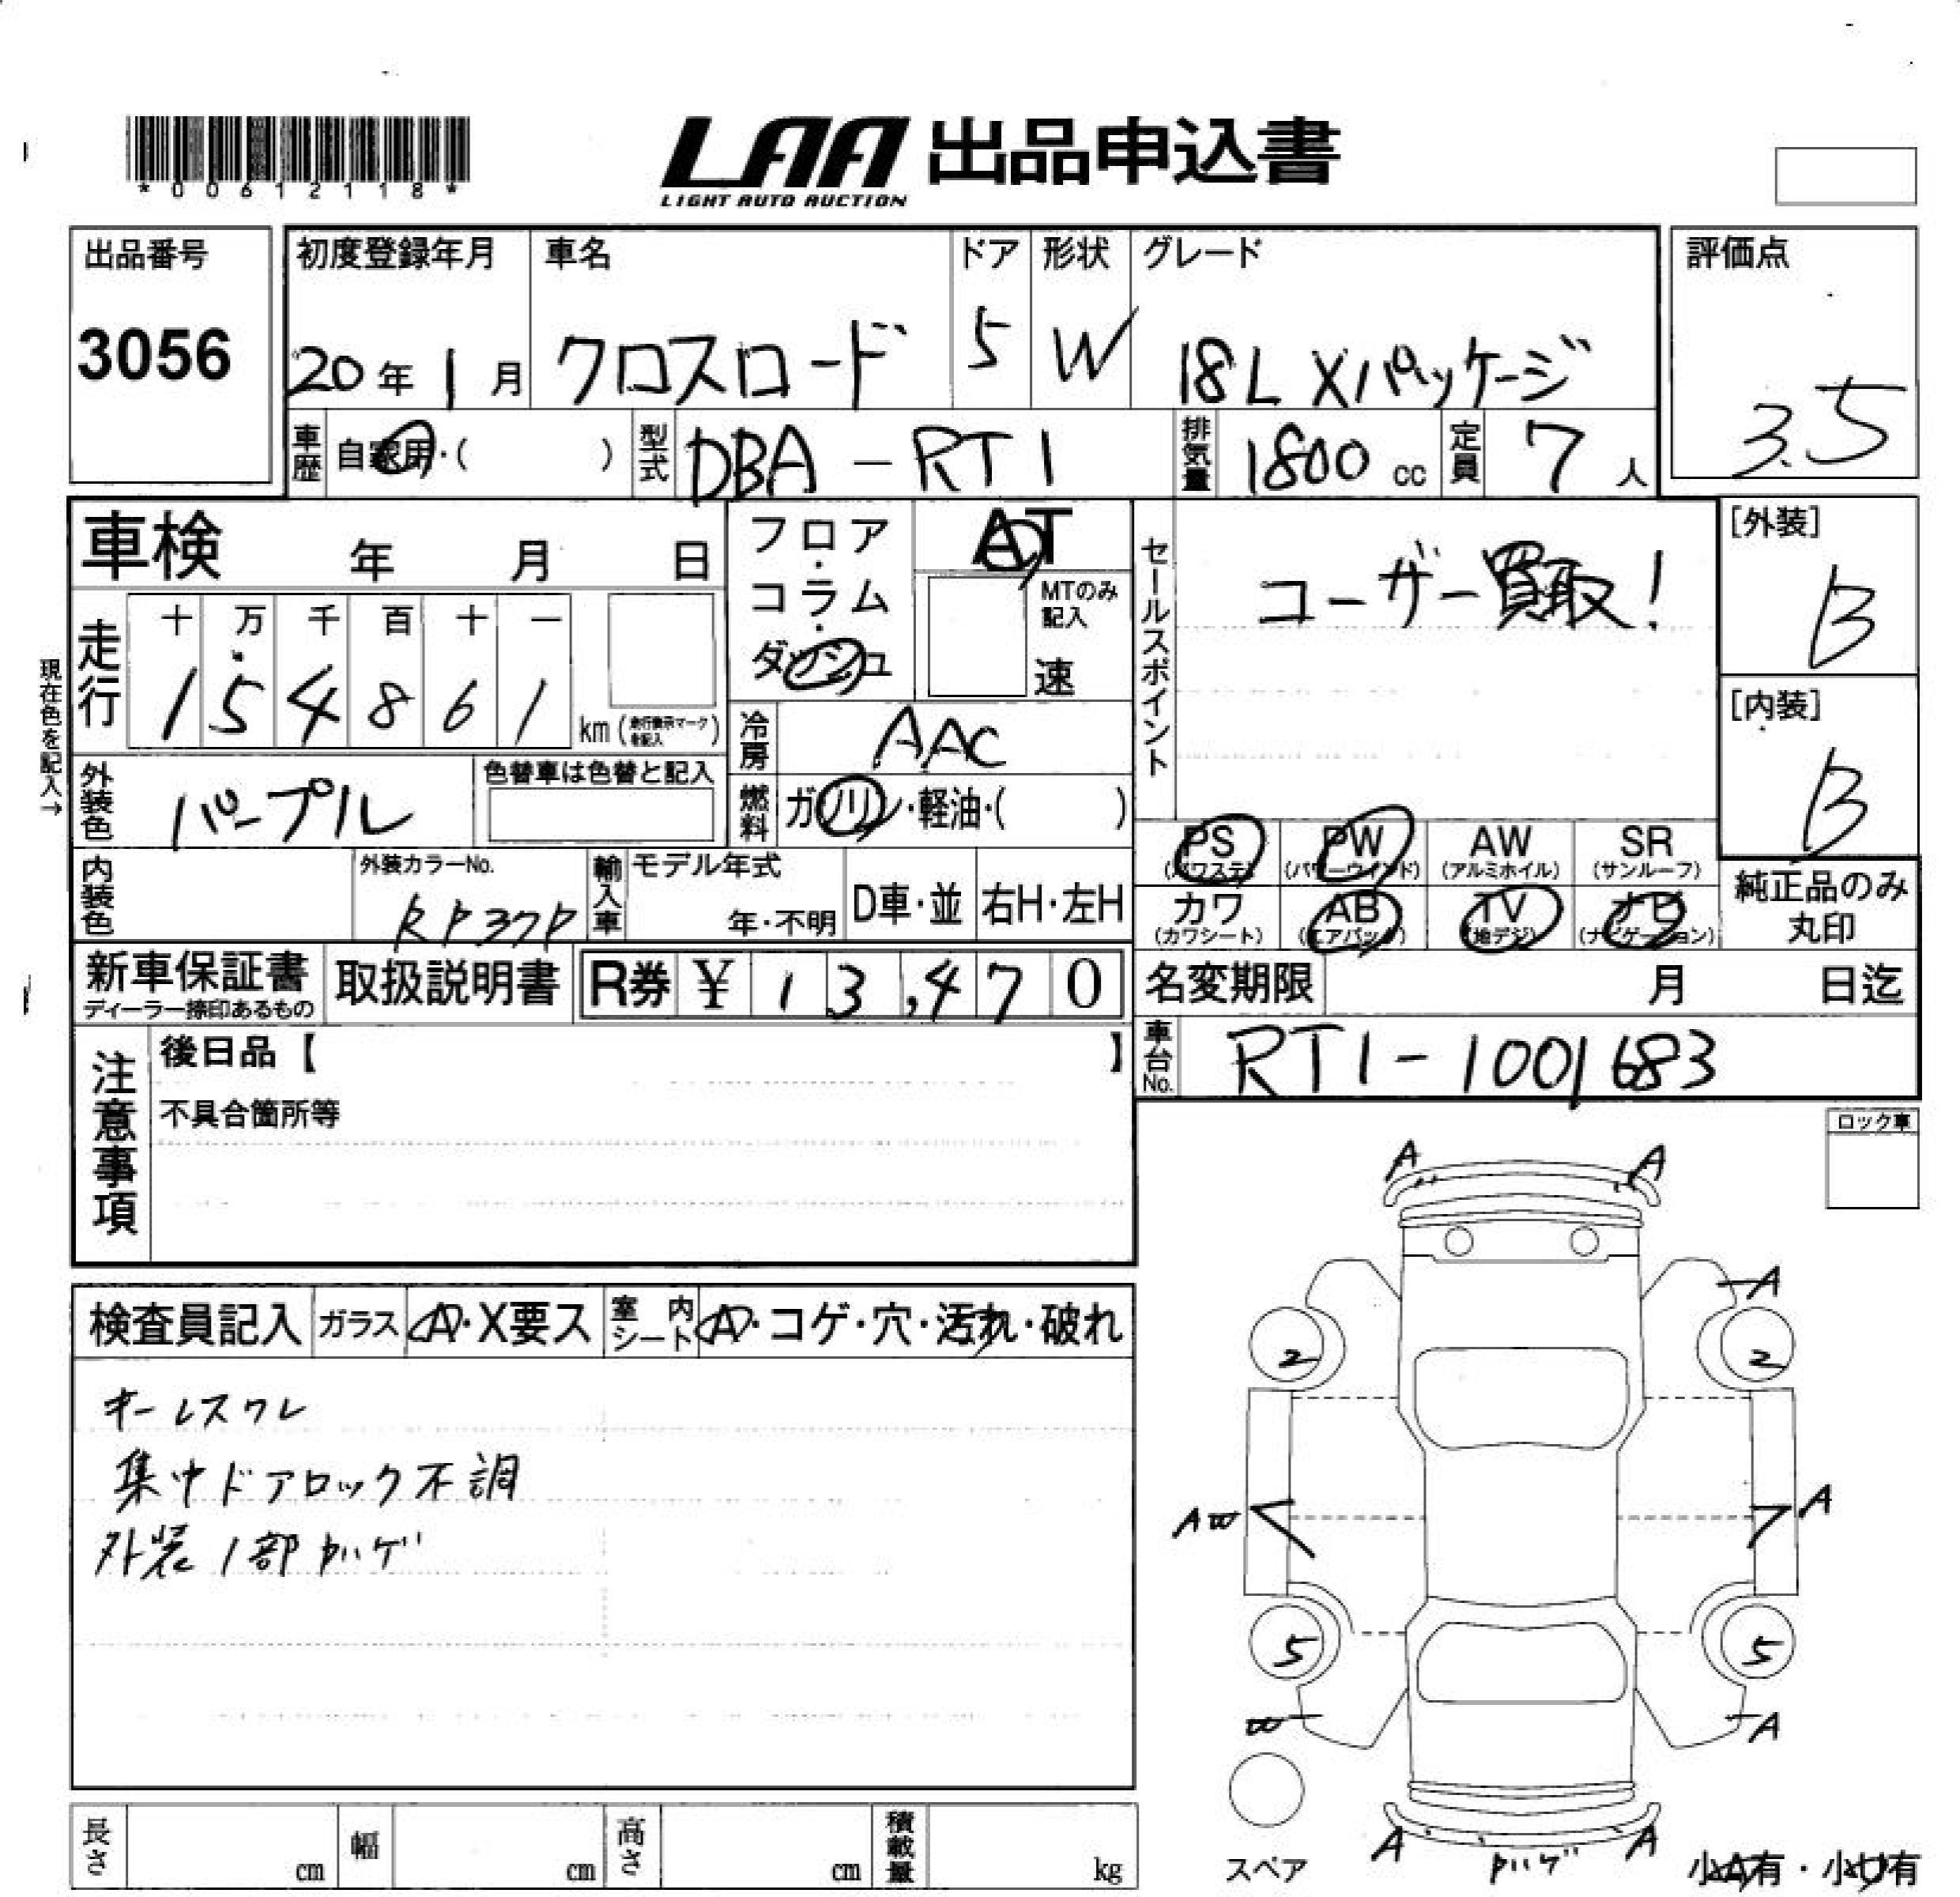 *00612118*
LAA 出品申込書
LIGHT AUTO AUCTION
出品番号
3056
初度登録年月
20年1月
車名
クロスロード
ドア
5
形状
W
グレード
18L Xパッケージ
評価点
3.5
車歴
自家用・( )
型式
DBA-RT1
排気量
1800 cc
定員
7人
車検 年 月 日
フロア・コラム・ダッシュ
AT
MTのみ記入
速
セールスポイント
ユーザー買取!
[外装]
B
[内装]
B
現在色を記入→
走行
十 万 千 百 十 一
1 5 4 8 6 1 km
冷房
AAC
外装色
パープル
色替車は色替と記入
燃料
ガソリン・軽油・( )
PS
(パワステ)
PW
(パワーウインド)
AW
(アルミホイル)
SR
(サンルーフ)
カワ
(カワシート)
AB
(エアバッグ)
TV
(地デジ)
ナビ
(ナビゲーション)
純正品のみ
丸印
内装色
外装カラーNo.
輸入車
モデル年式
年・不明
D車・並
右H・左H
新車保証書
ディーラー捺印あるもの
取扱説明書
R券 ¥ 13,470
名変期限 月 日迄
車台No.
RT1-1001683
注意事項
後日品【 】
不具合箇所等
ロック車
検査員記入
ガラス
A・X要ス
室内シート
A・コゲ・穴・汚れ・破れ
キーレスワレ
集中ドアロック不調
外装1部ハゲ
A A
A
2 2
AW A
5 5
W A
A A
スペア
小A有・小U有
長さ cm
幅 cm
高さ cm
積載量 kg